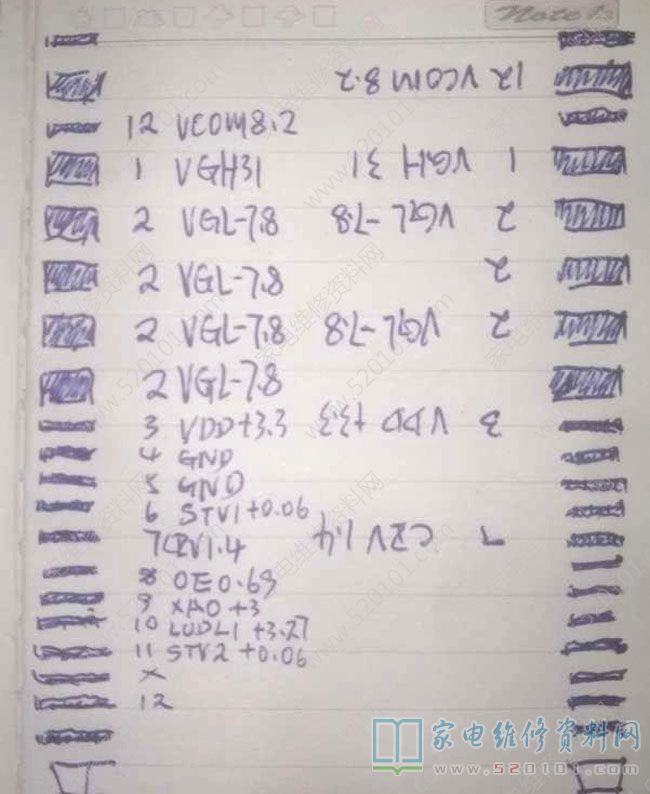 Note
12 VCOM 8.2
12 VCOM8.2
1 VGH31 1 VGH 31
2 VGL-7.8 2 VGL -7.8
2 VGL-7.8 2
2 VGL-7.8 2 VGL -7.8
2 VGL-7.8
3 VDD+3.3 3 VDD +3.3
4 GND
5 GND
6 STV1+0.06
7 CPV1.4 7 CZV 1.4
8 OE0.69
9 XAO+3
10 LUDL1 +3.27
11 STV2 +0.06
X
12
家电维修资料网
www.520101.com